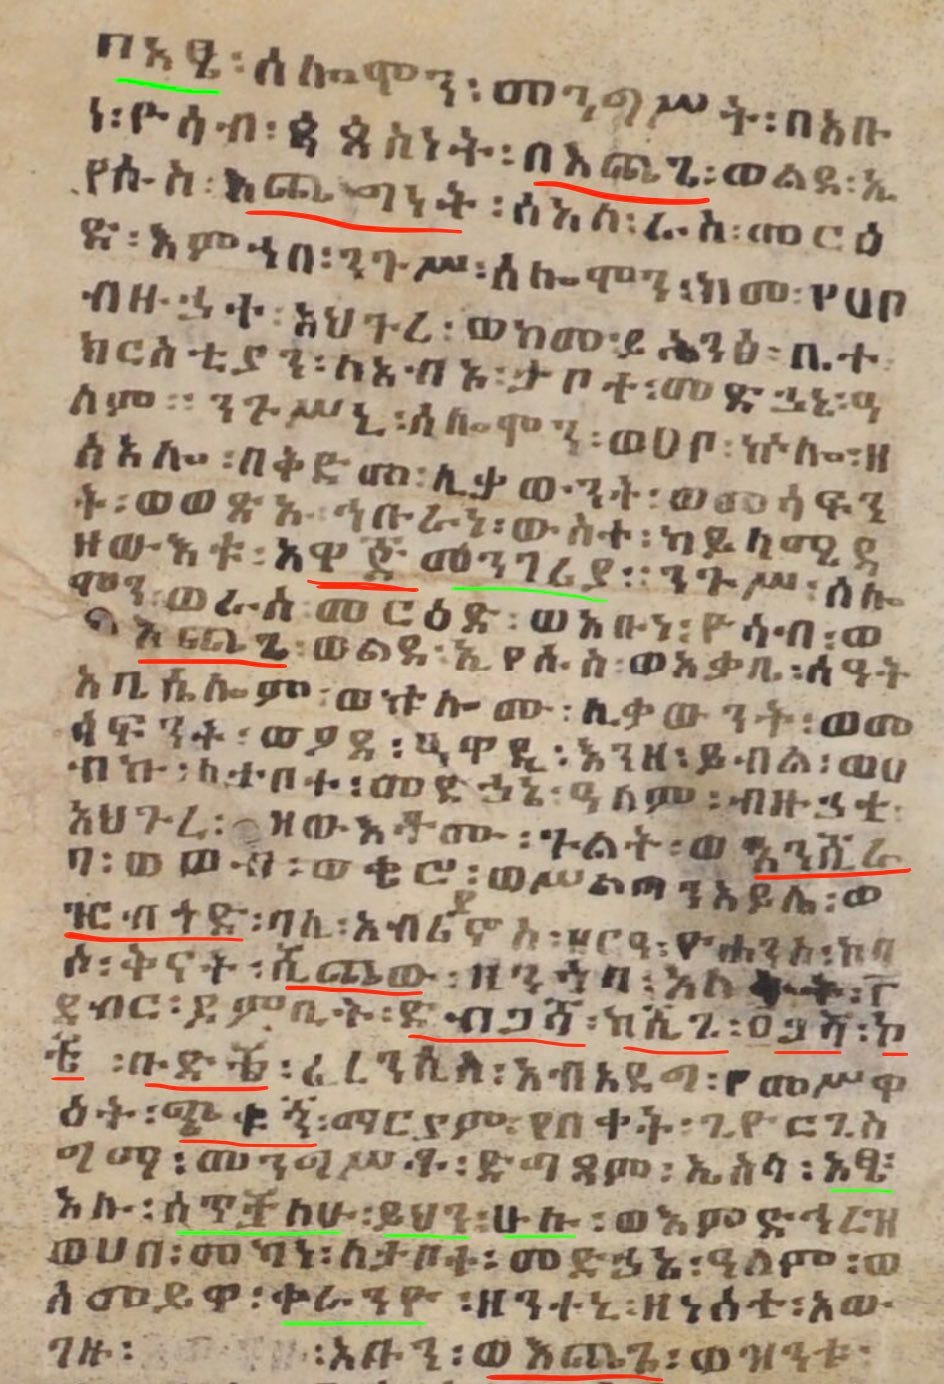 በአፄ፡ሰሎሞን፡መንግሥት፡በአቡ
ነ፡ዮሳብ፡ጳጳስነት፡በእጨጌ፡ወልደ፡ኢ
የሱስ፡እጨጌነት፡ሰአለ፡ራስ፡መርዕ
ድ፡እምኀበ፡ንጉሥ፡ሰሎሞን፡ከመ፡የሀቦ
ብዘኃተ፡አህጉረ፡ወከመ፡ይሕንፅ፡ቤተ
ክርስቲያን፡ለእብነ፡ታቦተ፡መድኃኔ፡ዓ
ለም፡፡ንጉሥኒ፡ሰሎሞን፡ወሀቦ፡ኵሎ፡ዘ
ሰአሎ፡በቅድመ፡ሊቃውንት፡ወመሳፍን
ት፡ወወጽኡ፡ኀቡራነ፡ውስተ፡
ዘውእቱ፡አዋጅ መንገሪያ፡፡ንጉሥ፡ሰሎ
ሞን፡ወራስ፡መርዕድ፡ወአቡነ፡ዮሳብ፡ወ
እጨጌ፡ወልደ፡ኢየሱስ፡ወአቃቤ፡ሰዓት
አቤሴሎም፡ወኵሎሙ፡ሊቃውንት፡ወመ
ሳፍንት፡ወያደ፡ዓዋዲ፡እንዘ፡ይብል፡ወሀ
ብኩ፡ለታቦተ፡መድኃኔ፡ዓለም፡ብዙኃተ
አህጉረ፡ዝውእቶሙ፡ጉልት፡ወ እንሺራ
ባ፡ወ ወ ቂሮ፡ወሥልጣን አይሌ፡ወ
ዡርብጎድ፡ባሊ፡አብሪኮስ፡ዘርዓ፡ዮሐንስ፡ከባ
ሶ፡ትናት፡ሺጨው፡ዘንኅባ፡እስ
ደብር፡ደምቢት፡ድብጋሻ፡ከሺጊ፡ዐጋሻ፡ኮ
ቼ፡ቡድቼ፡ፈረንሺስ፡አብአደግ፡የመሥዋ
ዕት፡ጭቁኝ፡ማርያም፡የበቀት፡ጊዮርጊስ
ግማ፡መንግሥት፡ድማዳም፡ኢሰባ፡አፄ፡
አሉ፡ሰጥቻለሁ፡ይህን፡ሁሉ፡ወእምድኅረዝ
ወሀበ፡መካነ፡ለታቦተ፡መድኃኔ፡ዓለም፡ወ
ለመይዋ፡ቀራንዮ፡ዘንተኒ፡ዘነሰተ፡አው
ገዙ፡ ፡አቡን፡ወእጨጌ፡ወዝንቱ፡